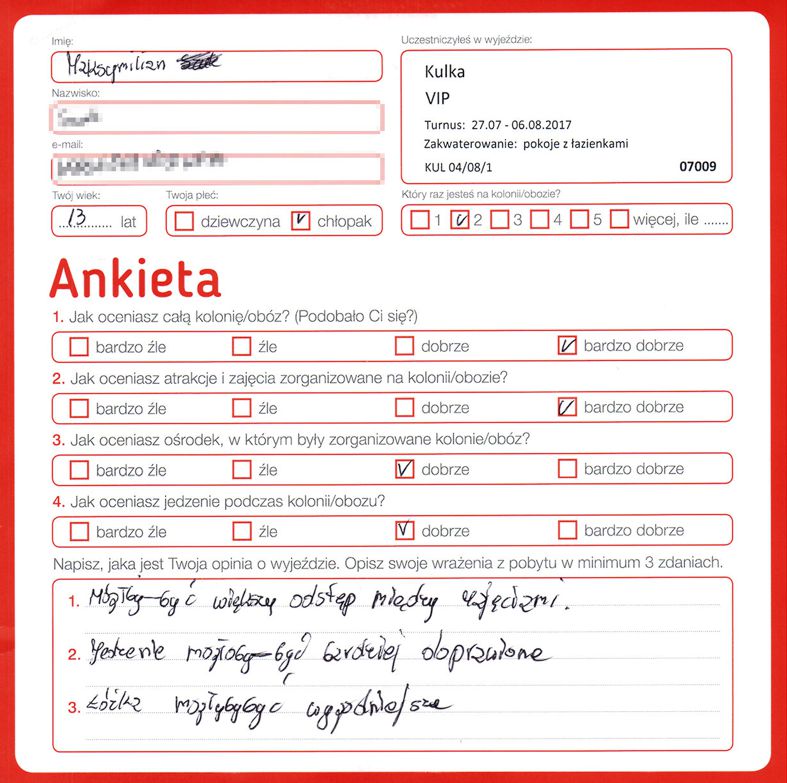 Imię:
Maksymilian
Uczestniczyłeś w wyjeździe:
Kulka
VIP
Turnus: 27.07 - 06.08.2017
Zakwaterowanie: pokoje z łazienkami
KUL 04/08/1 07009
Nazwisko:
e-mail:
Twój wiek: Twoja płeć:
13 lat dziewczyna chłopak
Który raz jesteś na kolonii/obozie?
1 2 3 4 5 więcej, ile .......
Ankieta
1. Jak oceniasz całą kolonię/obóz? (Podobało Ci się?)
bardzo źle źle dobrze bardzo dobrze
2. Jak oceniasz atrakcje i zajęcia zorganizowane na kolonii/obozie?
bardzo źle źle dobrze bardzo dobrze
3. Jak oceniasz ośrodek, w którym były zorganizowane kolonie/obóz?
bardzo źle źle dobrze bardzo dobrze
4. Jak oceniasz jedzenie podczas kolonii/obozu?
bardzo źle źle dobrze bardzo dobrze
Napisz, jaka jest Twoja opinia o wyjeździe. Opisz swoje wrażenia z pobytu w minimum 3 zdaniach.
1. Mógłby być większy odstęp między zajęciami.
2. Jedzenie mogłoby być bardziej doprawione
3. Łóżka mogłyby być wygodniejsze